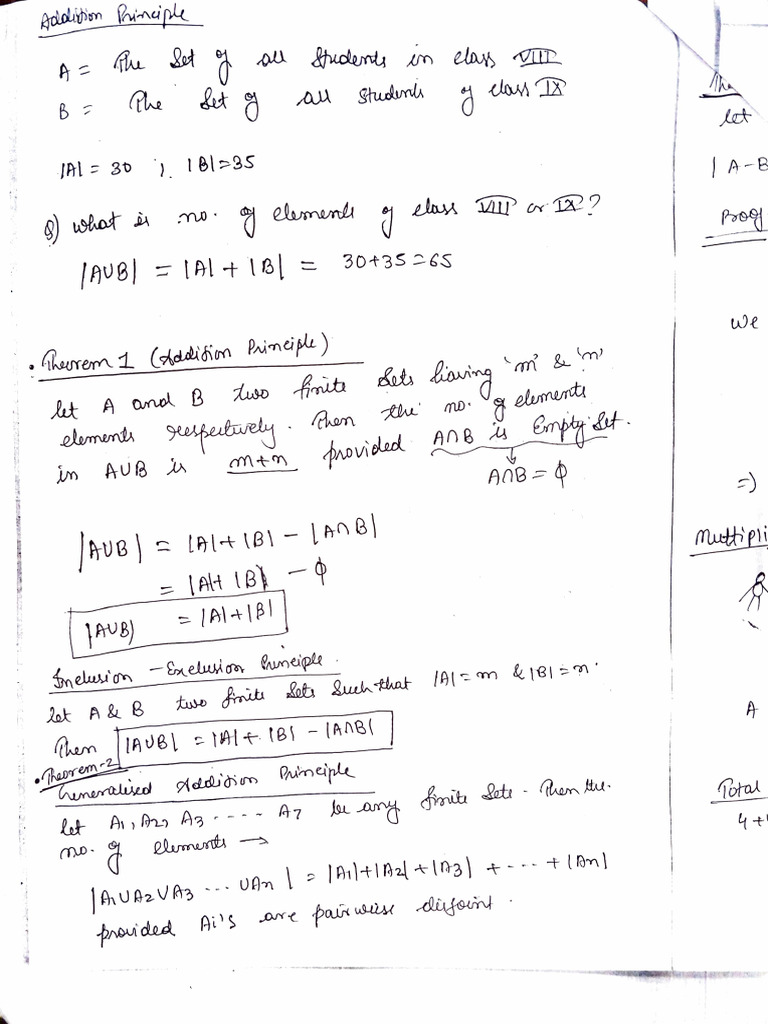 Addition Principle
A = The Set of all Students in class VIII
B = The Set of all students of class IX
|A| = 30 ; |B| = 35
Q) What is no. of elements of class VIII or IX?
|A∪B| = |A| + |B| = 30+35 = 65
• Theorem 1 (Addition Principle)
let A and B two finite sets having 'm' & 'n'
elements respectively. Then the no. of elements
in A∪B is m+n provided A∩B is Empty Set.
A∩B = ϕ
|A∪B| = |A| + |B| - |A∩B|
= |A| + |B| - ϕ
|A∪B| = |A| + |B|
Inclusion - Exclusion Principle.
let A & B two finite Sets Such that |A| = m & |B| = n.
Then |A∪B| = |A| + |B| - |A∩B|
• Theorem-2
Generalised Addition Principle
let A1, A2, A3 ..... A7 be any finite Sets. Then the.
no. of elements →
|A1∪A2∪A3 ... ∪An| = |A1|+|A2|+|A3| + ... + |An|
provided Ai's are pairwise disjoint.
let
| A-B
Proof
We
=)
Multipli
A
Total